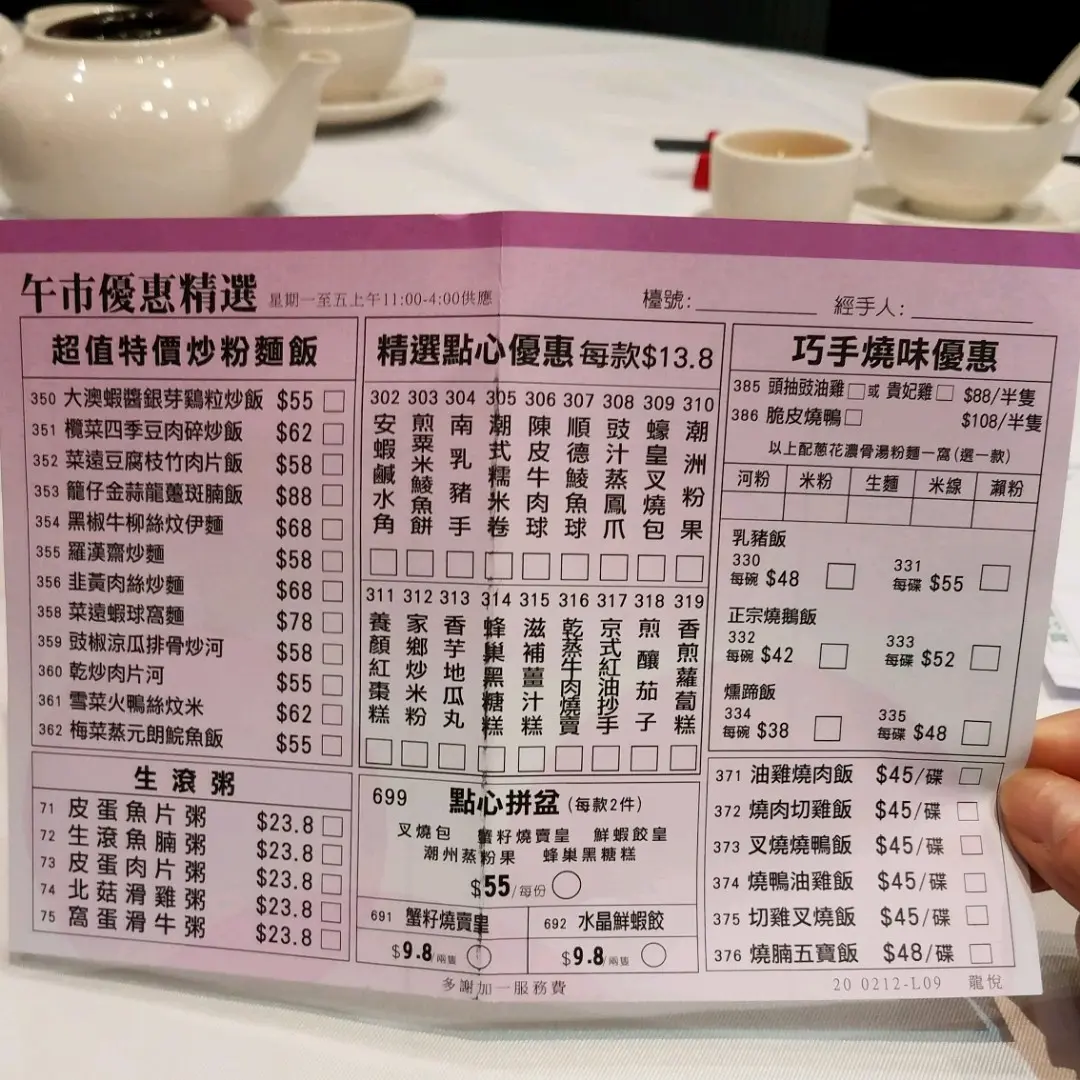 午市優惠精選 星期一至五上午11:00-4:00供應
檯號: 經手人:
超值特價炒粉麵飯
350 大澳蝦醬銀芽鷄粒炒飯 $55
351 欖菜四季豆肉碎炒飯 $62
352 菜遠豆腐枝竹肉片飯 $58
353 籠仔金蒜龍躉斑腩飯 $88
354 黑椒牛柳絲炆伊麵 $68
355 羅漢齋炒麵 $58
356 韭黃肉絲炒麵 $68
358 菜遠蝦球窩麵 $78
359 豉椒涼瓜排骨炒河 $58
360 乾炒肉片河 $55
361 雪菜火鴨絲炆米 $62
362 梅菜蒸元朗鯇魚飯 $55
生滾粥
71 皮蛋魚片粥 $23.8
72 生滾魚腩粥 $23.8
73 皮蛋肉片粥 $23.8
74 北菇滑雞粥 $23.8
75 窩蛋滑牛粥 $23.8
精選點心優惠 每款$13.8
302 安蝦鹹水角
303 煎粟米鯪魚餅
304 南乳豬手
305 潮式糯米卷
306 陳皮牛肉球
307 順德鯪魚球
308 豉汁蒸鳳爪
309 蠔皇叉燒包
310 潮洲粉果
311 養顏紅棗糕
312 家鄉炒米粉
313 香芋地瓜丸
314 蜂巢黑糖糕
315 滋補薑汁糕
316 乾蒸牛肉燒賣
317 京式紅油抄手
318 煎釀茄子
319 香煎蘿蔔糕
699 點心拼盆 (每款2件)
叉燒包 蟹籽燒賣皇 鮮蝦餃皇
潮州蒸粉果 蜂巢黑糖糕
$55/每份
691 蟹籽燒賣皇
$9.8/兩隻
692 水晶鮮蝦餃
$9.8/兩隻
巧手燒味優惠
385 頭抽豉油雞 或 貴妃雞 $88/半隻
386 脆皮燒鴨 $108/半隻
以上配蔥花濃骨湯粉麵一窩(選一款)
河粉 米粉 生麵 米線 瀨粉
乳豬飯
330 每碗 $48
331 每碟 $55
正宗燒鵝飯
332 每碗 $42
333 每碟 $52
燻蹄飯
334 每碗 $38
335 每碟 $48
371 油雞燒肉飯 $45/碟
372 燒肉切雞飯 $45/碟
373 叉燒燒鴨飯 $45/碟
374 燒鴨油雞飯 $45/碟
375 切雞叉燒飯 $45/碟
376 燒腩五寶飯 $48/碟
多謝加一服務費
20 0212-L09 龍悅